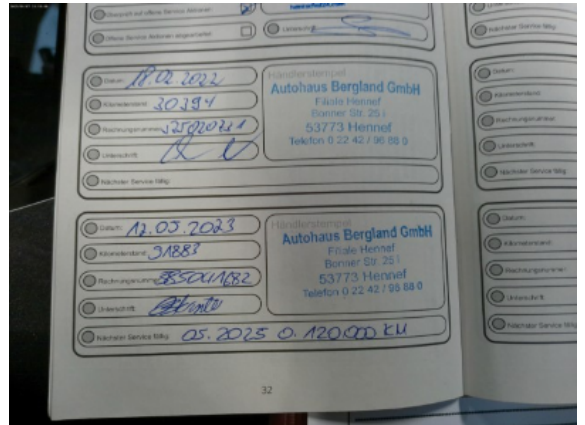 Offene Service Aktionen abgearbeitet
Unterschrift
Datum: 18.02.2022
Kilometerstand: 30394
Rechnungsnummer:
Unterschrift:
Nächster Service fällig:
Händlerstempel
Autohaus Bergland GmbH
Filiale Hennef
Bonner Str. 25 i
53773 Hennef
Telefon 0 22 42 / 96 88 0
Datum: 12.05.2023
Kilometerstand: 91883
Rechnungsnummer: 5850041682
Unterschrift:
Nächster Service fällig: 05.2025 o. 120.000 KM
Händlerstempel
Autohaus Bergland GmbH
Filiale Hennef
Bonner Str. 25 i
53773 Hennef
Telefon 0 22 42 / 96 88 0
32
Nächster Service fällig:
Datum:
Kilometerstand:
Rechnungsnummer:
Unterschrift:
Nächster Service fällig
Datum:
Kilometerstand:
Rechnungsnummer:
Unterschrift:
Nächster Service fällig